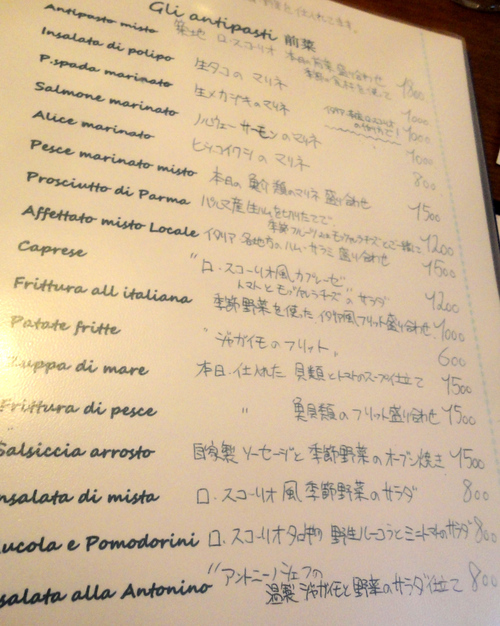 Gli antipasti 前菜
Antipasto misto 築地 ロ・スコーリオ 本日の前菜盛り合わせ 1800
Insalata di polipo 生タコのマリネ 1000
P.spada marinato 生メカジキのマリネ 1000
Salmone marinato ノルウェーサーモンのマリネ 1000
Alice marinato ヒシコイワシのマリネ 800
Pesce marinato misto 本日の魚介類のマリネ盛り合わせ 1500
Prosciutto di Parma パルマ産生ハムを切りたてで 季節フルーツ モッツァレラチーズとご一緒に 1200
Affettato misto Locale イタリア各地方のハム・サラミ盛り合わせ 1500
Caprese "ロ・スコーリオ風カプレーゼ"
トマトとモッツァレラチーズのサラダ 1200
Frittura all italiana 季節野菜を使ったイタリア風フリット盛り合わせ 1000
Patate fritte "ジャガイモのフリット" 600
Zuppa di mare 本日仕入れた貝類とトマトのスープ仕立て 1500
Frittura di pesce 〃 魚貝類のフリット盛り合わせ 1500
Salsiccia arrosto 自家製ソーセージと季節野菜のオーブン焼き 1500
Insalata di mista ロ・スコーリオ風季節野菜のサラダ 800
Rucola e Pomodorini ロ・スコーリオ 野生ルーコラとミニトマトのサラダ 800
Insalata alla Antonino "アントニーノシェフの
温製ジャガイモと野菜のサラダ仕立て 800